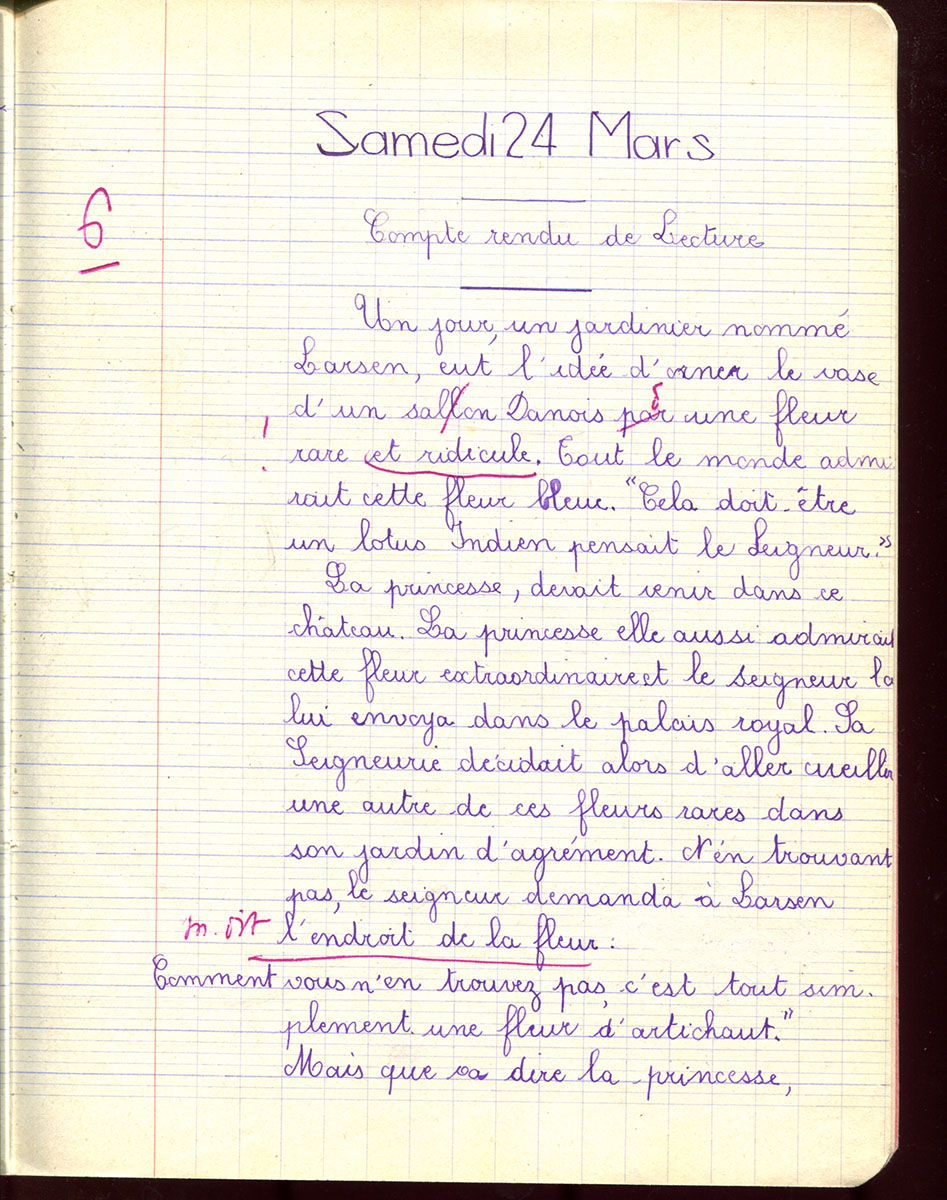 Samedi 24 Mars
6
Compte rendu de Lecture
Un jour, un jardinier nommé
Larsen, eut l'idée d'orner le vase
d'un sallon Danois par une fleur
!
rare et ridicule. Tout le monde admi
rait cette fleur bleue. "Cela doit-être
un lotus Indien pensait le Seigneur."
La princesse, devait venir dans ce
château. La princesse elle aussi admirait
cette fleur extraordinaire et le seigneur la
lui envoya dans le palais royal. Sa
Seigneurie décidait alors d'aller cueillir
une autre de ces fleurs rares dans
son jardin d'agrément. N'én trouvant
pas, le seigneur demanda à Larsen
m. dit l'endroit de la fleur :
Comment vous n'en trouvez pas, c'est tout sim-
plement une fleur d'artichaut."
Mais que va dire la princesse,